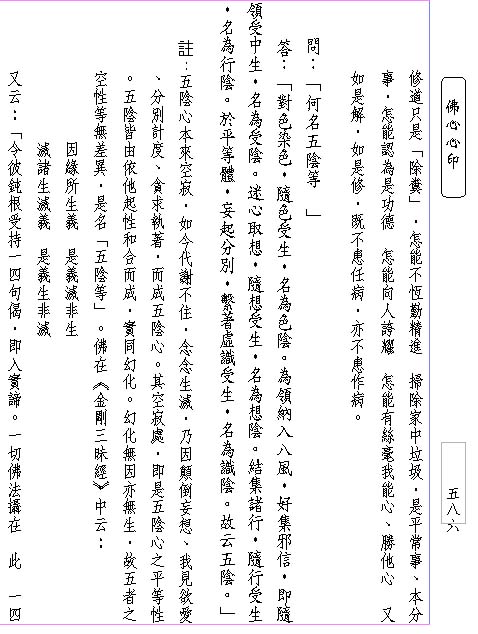 佛心心印
五八六
修道只是「除糞」，怎能不恆勤精進　掃除家中垃圾，是平常事、本分
事，怎能認為是功德　怎能向人誇耀　怎能有絲毫我能心、勝他心　又
如是解，如是修，既不患任病，亦不患作病。
問：「何名五陰等　」
答：「對色染色，隨色受生，名為色陰。為領納入八風，好集邪信，即隨
領受中生，名為受陰。迷心取想，隨想受生，名為想陰。結集諸行，隨行受生
，名為行陰。於平等體，妄起分別，繫著虛識受生，名為識陰。故云五陰。」
註：五陰心本來空寂，如今代謝不住，念念生滅，乃因顛倒妄想、我見欲愛
、分別計度、貪求執著，而成五陰心。其空寂處，即是五陰心之平等性
。五陰皆由依他起性和合而成，實同幻化。幻化無因亦無生，故五者之
空性等無差異，是名「五陰等」。佛在《金剛三昧經》中云：
因緣所生義　是義滅非生
滅諸生滅義　是義生非滅
又云：「令彼鈍根受持一四句偈，即入實諦。一切佛法攝在　此　一四